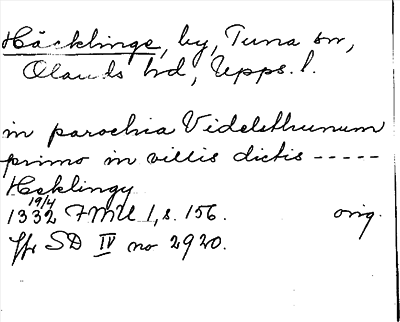 Häcklinge, by, Tuna sn,
Olands hd, Upps. l.
in parochia Videlsthunum
primo in villis dictis -----
Hæklingy
19/4
1332 FMU 1, s. 156. orig.
Jfr SD IV no 2920.